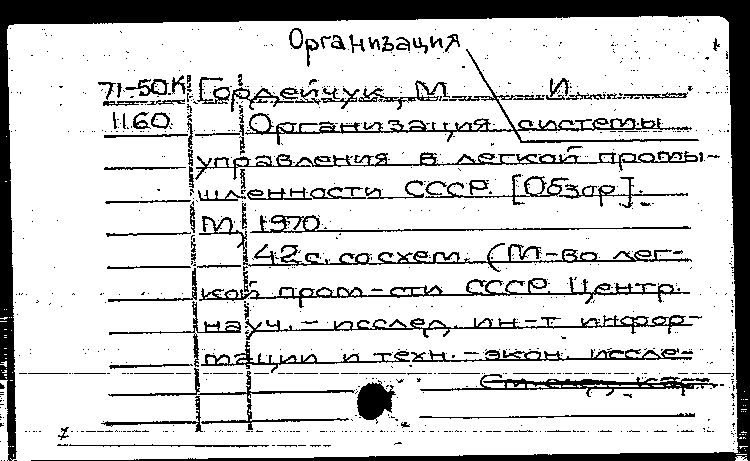 Организация
71-50К Гордейчук, М И.
1160 Организация системы
управления в легкой промы-
шленности СССР. [Обзор].
М, 1970.
42с. со схем. (М-во лег-
кой пром-сти СССР. Центр.
науч.-исслед. ин-т инфор-
мации и техн.-экон. иссле-
См. след. кар-